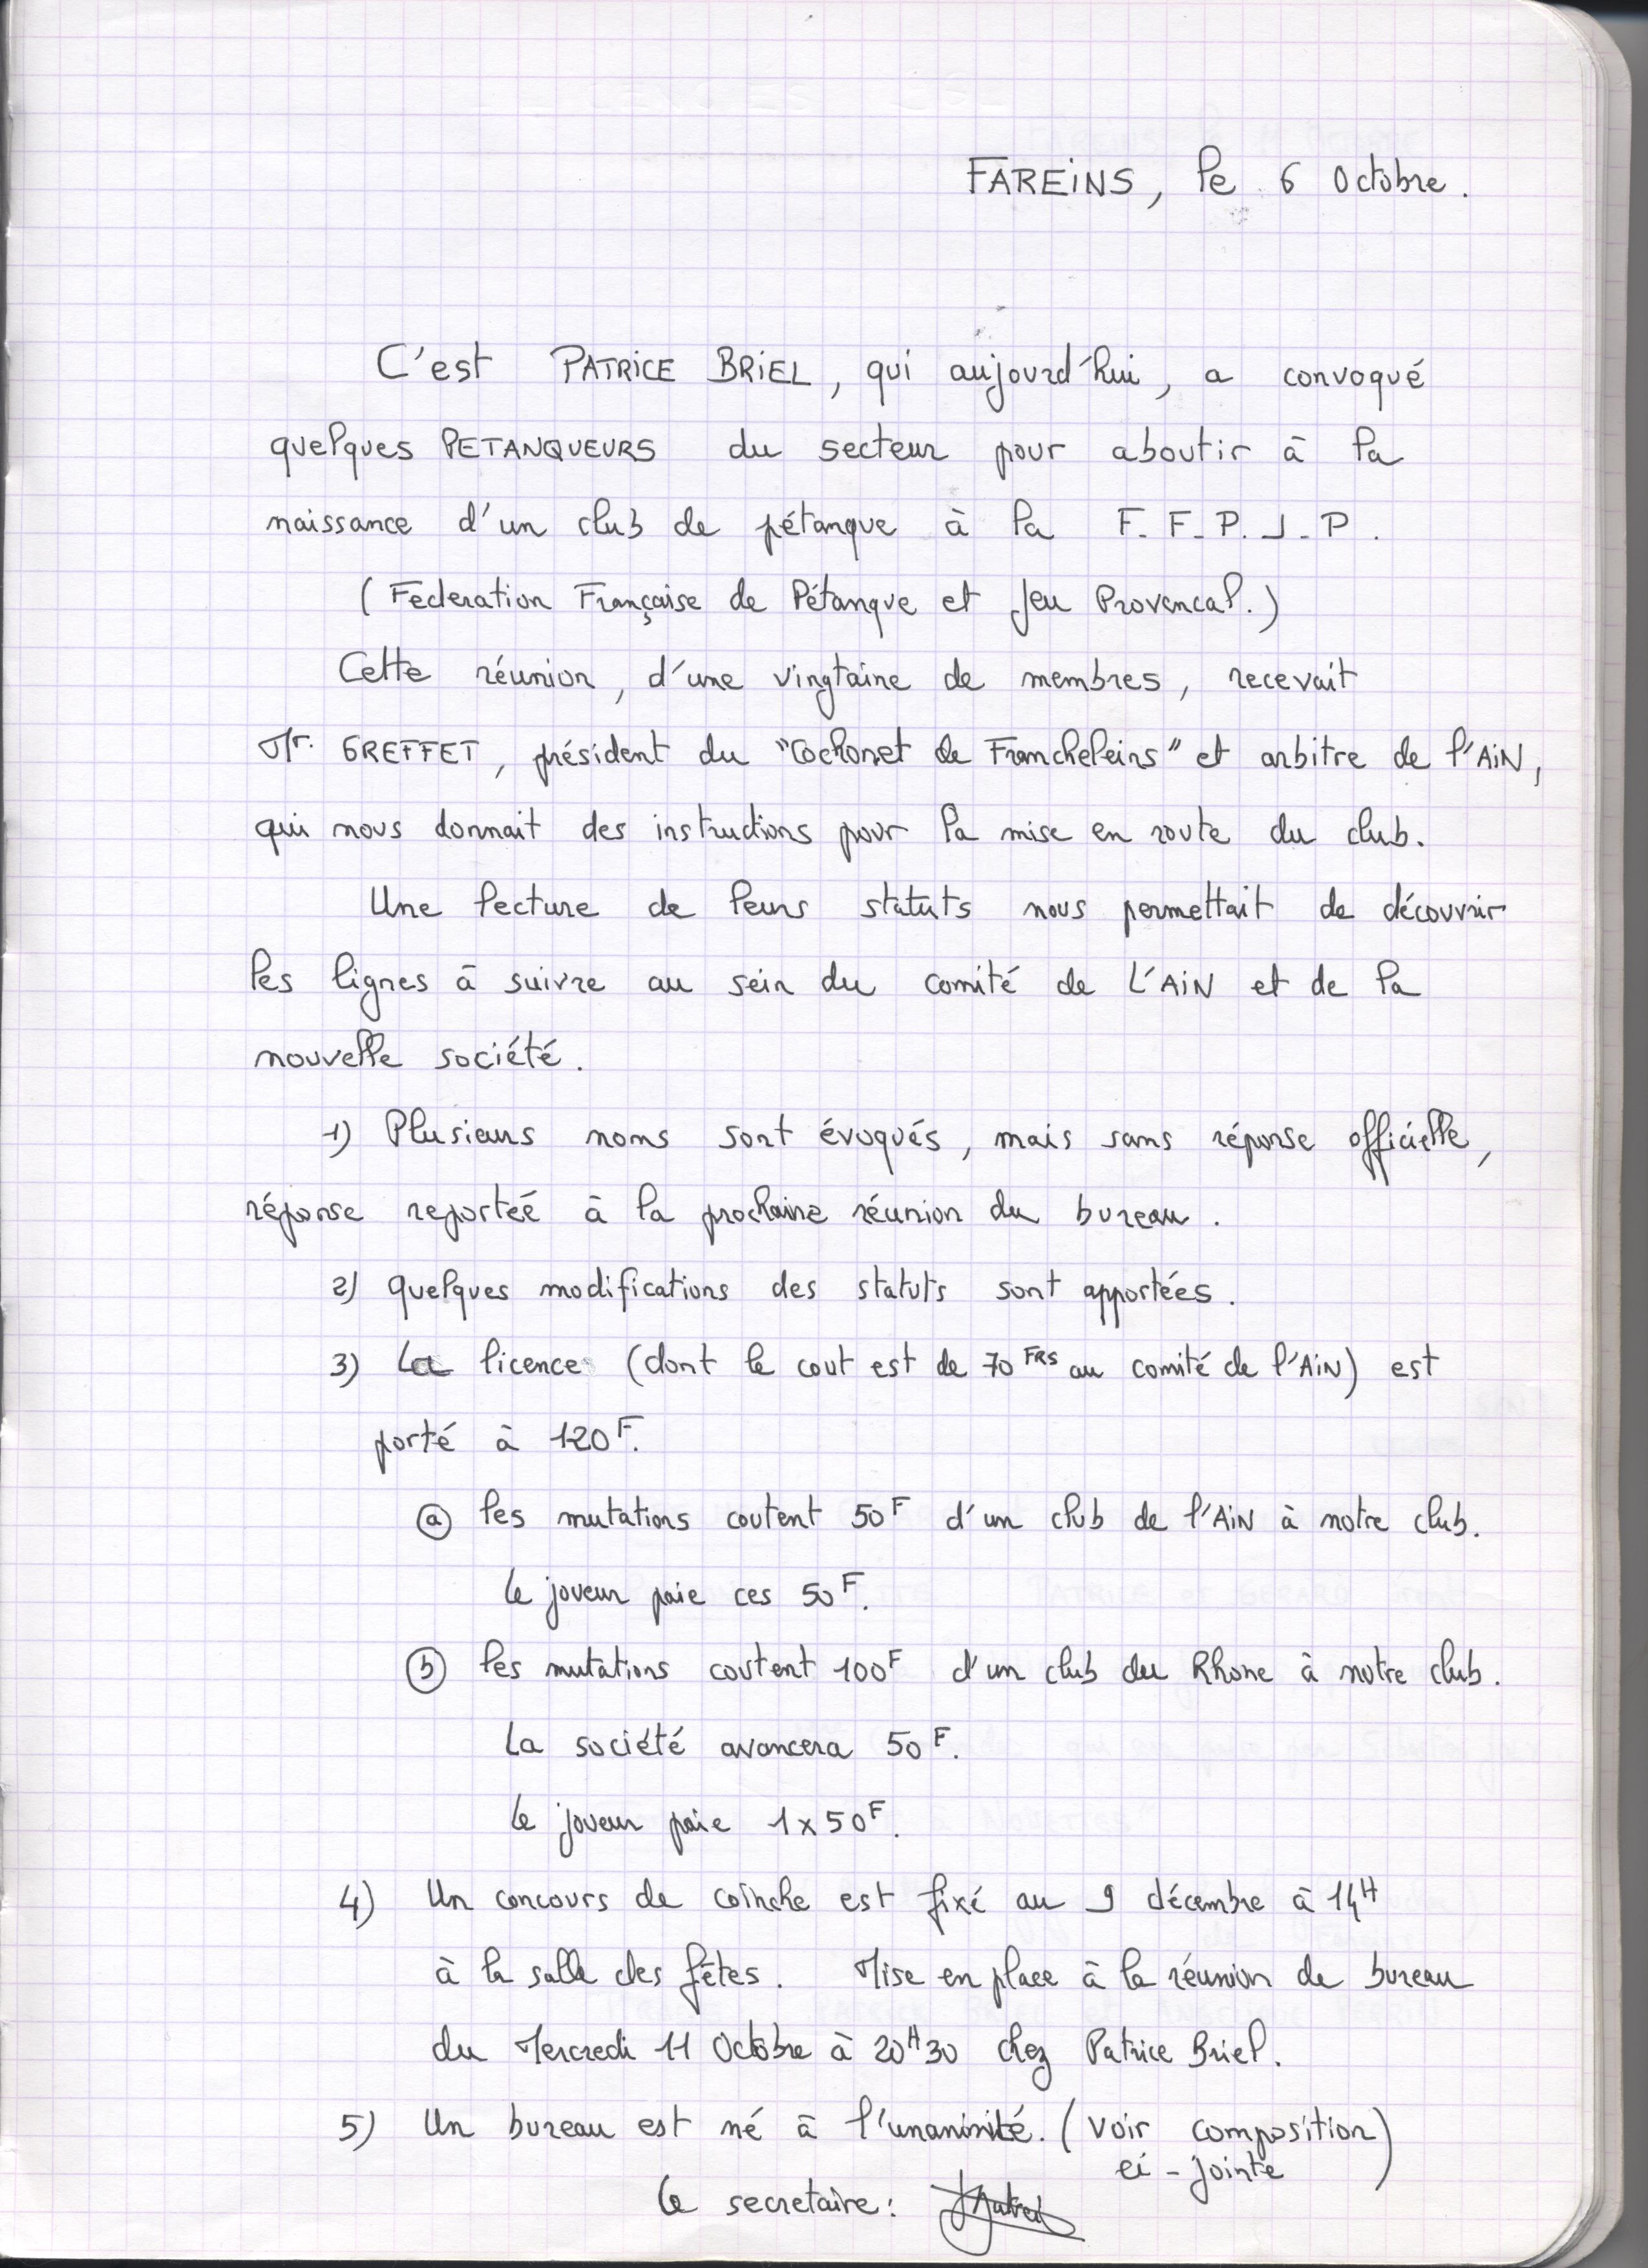 FAREINS, le 6 Octobre.
C'est PATRICE BRIEL, qui aujourd'hui, a convoqué
quelques PETANQUEURS du secteur pour aboutir à la
naissance d'un club de pétanque à la F.F.P.J.P.
(Federation Française de Pétanque et Jeu Provencal.)
Cette réunion, d'une vingtaine de membres, recevait
Mr. GREFFET, président du "Cochonet de Francheleins" et arbitre de l'AIN,
qui nous donnait des instructions pour la mise en route du club.
Une lecture de leurs statuts nous permettait de découvrir
les lignes à suivre au sein du comité de L'AIN et de la
nouvelle société.
1) Plusieurs noms sont évoqués, mais sans réponse officielle,
réponse reportée à la prochaine réunion du bureau.
2) quelques modifications des statuts sont apportées.
3) La licence (dont le cout est de 70 FRS au comité de l'AIN) est
porté à 120 F.
a) les mutations coutent 50 F d'un club de l'AIN à notre club.
le joueur paie ces 50 F.
b) les mutations coutent 100 F d'un club du Rhone à notre club.
La société avancera 50 F.
le joueur paie 1 x 50 F.
4) Un concours de coinche est fixé au 9 décembre à 14 H
à la salle des fêtes. Mise en place à la réunion de bureau
du Mercredi 11 Octobre à 20 H 30 chez Patrice Briel.
5) Un bureau est né à l'unanimité. (voir composition)
ci-jointe
le secretaire: